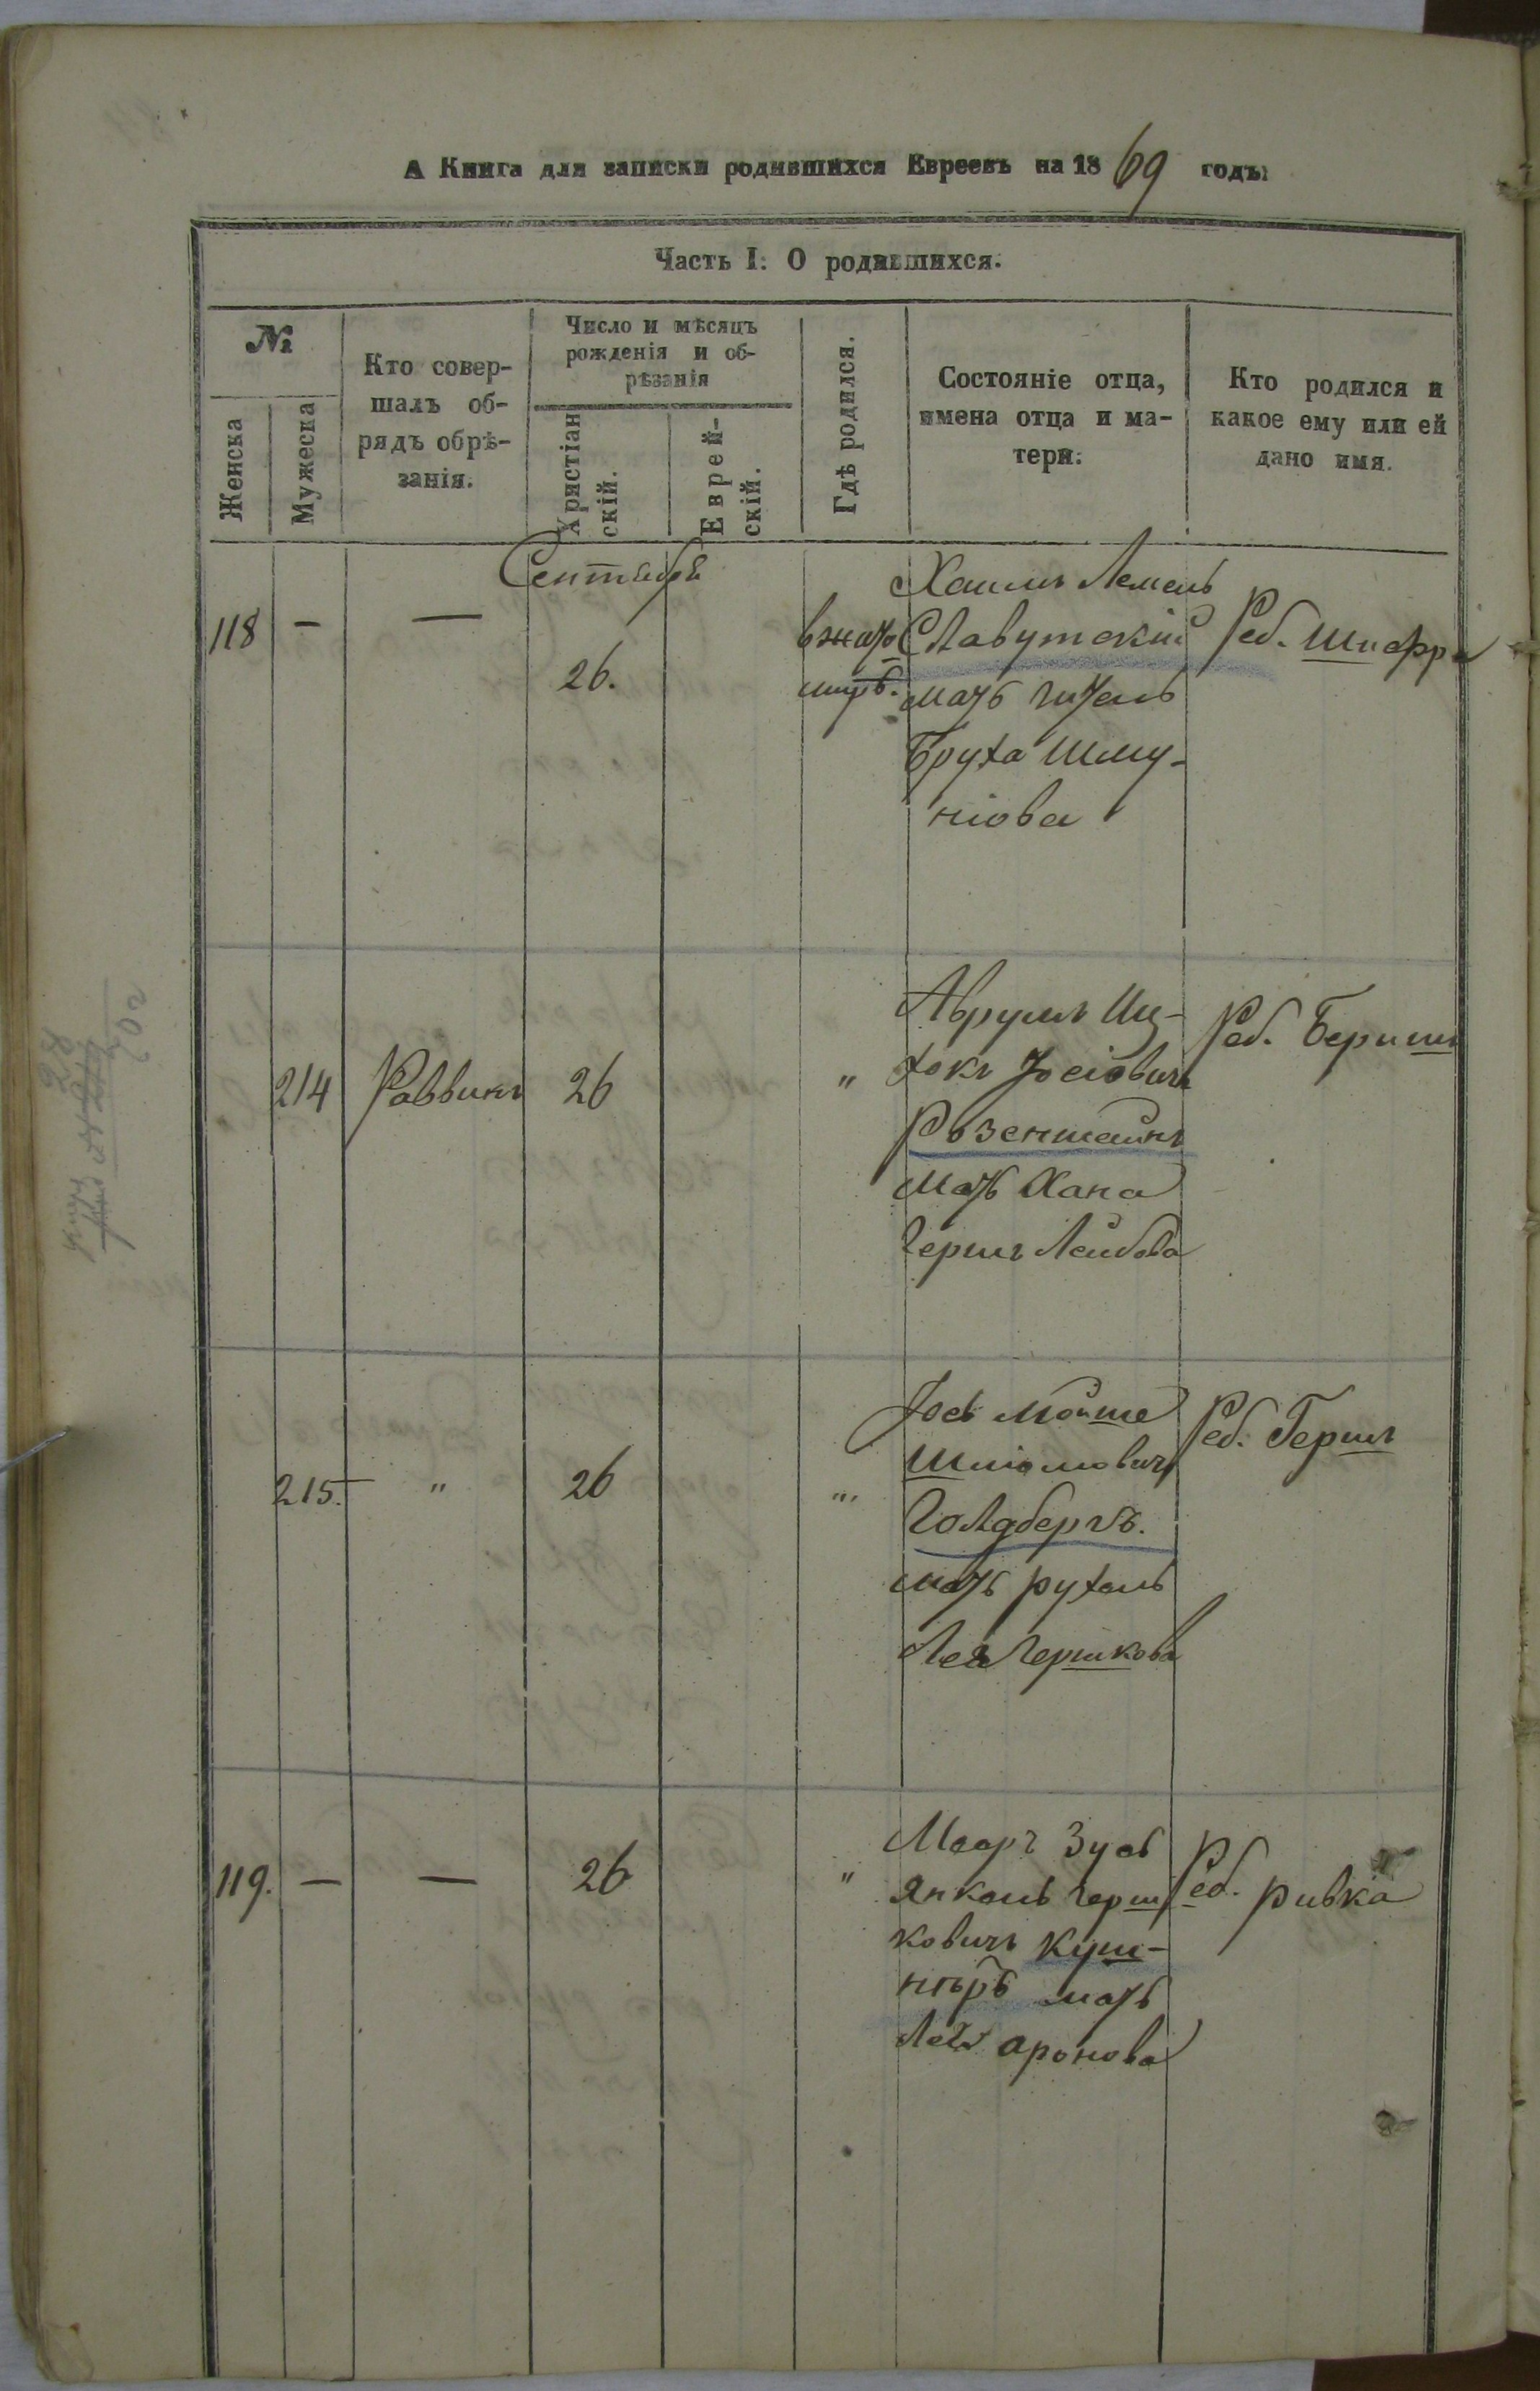 А Книга для записки родившихся Евреевъ на 1869 годъ:
Часть I: О родившихся.
№
Женска
Мужеска
Кто совер-
шалъ об-
рядъ обрѣ-
занія.
Число и мѣсяцъ
рожденія и об-
рѣзанія
Христіан
скій.
Еврей-
скій.
Гдѣ родился.
Состояніе отца,
имена отца и ма-
тери.
Кто родился и
какое ему или ей
дано имя.
Сентября
118 — —
26.
вжито
миръ.
Хаимъ Лемель
Славутскій
мать Гитель
Бруха Шму-
ніова
Реб. Шифра
214 Раввинъ 26 "
Аврумъ Иц-
хокъ Іосіовичъ
Розенштейнъ
мать Хана
Герш Лейбова
Реб. Бериш
215. " 26 "
Іось Мойше
Шліомовичъ
Голдбергъ.
мать рухель
Лея Гершкова
Реб. Гершъ
119. — — 26 "
Меер Зусь
Янкель Герш
ковичъ Куш-
ниръ мать
Лея Аронова
Реб. ривка